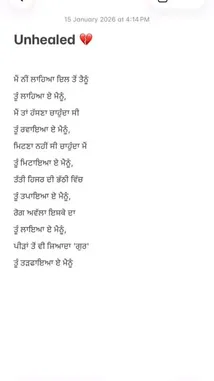 15 January 2026 at 4:14 PM
Unhealed 💔
ਮੈਂ ਨੀਂ ਲਾਹਿਆ ਦਿਲ ਤੋਂ ਤੈਨੂੰ
ਤੂੰ ਲਾਹਿਆ ਏ ਮੈਨੂੰ,
ਮੈਂ ਤਾਂ ਹੱਸਣਾ ਚਾਹੁੰਦਾ ਸੀ
ਤੂੰ ਰਵਾਇਆ ਏ ਮੈਨੂੰ,
ਮਿਟਣਾ ਨਹੀਂ ਸੀ ਚਾਹੁੰਦਾ ਮੈਂ
ਤੂੰ ਮਿਟਾਇਆ ਏ ਮੈਨੂੰ,
ਤੱਤੀ ਹਿਜਰ ਦੀ ਭੱਠੀ ਵਿੱਚ
ਤੂੰ ਤਪਾਇਆ ਏ ਮੈਨੂੰ,
ਰੋਗ ਅਵੱਲਾ ਇਸ਼ਕੇ ਦਾ
ਤੂੰ ਲਾਇਆ ਏ ਮੈਨੂੰ,
ਪੀੜਾਂ ਤੋਂ ਵੀ ਜਿਆਦਾ 'ਗੁਰ'
ਤੂੰ ਤੜਫਾਇਆ ਏ ਮੈਨੂੰ